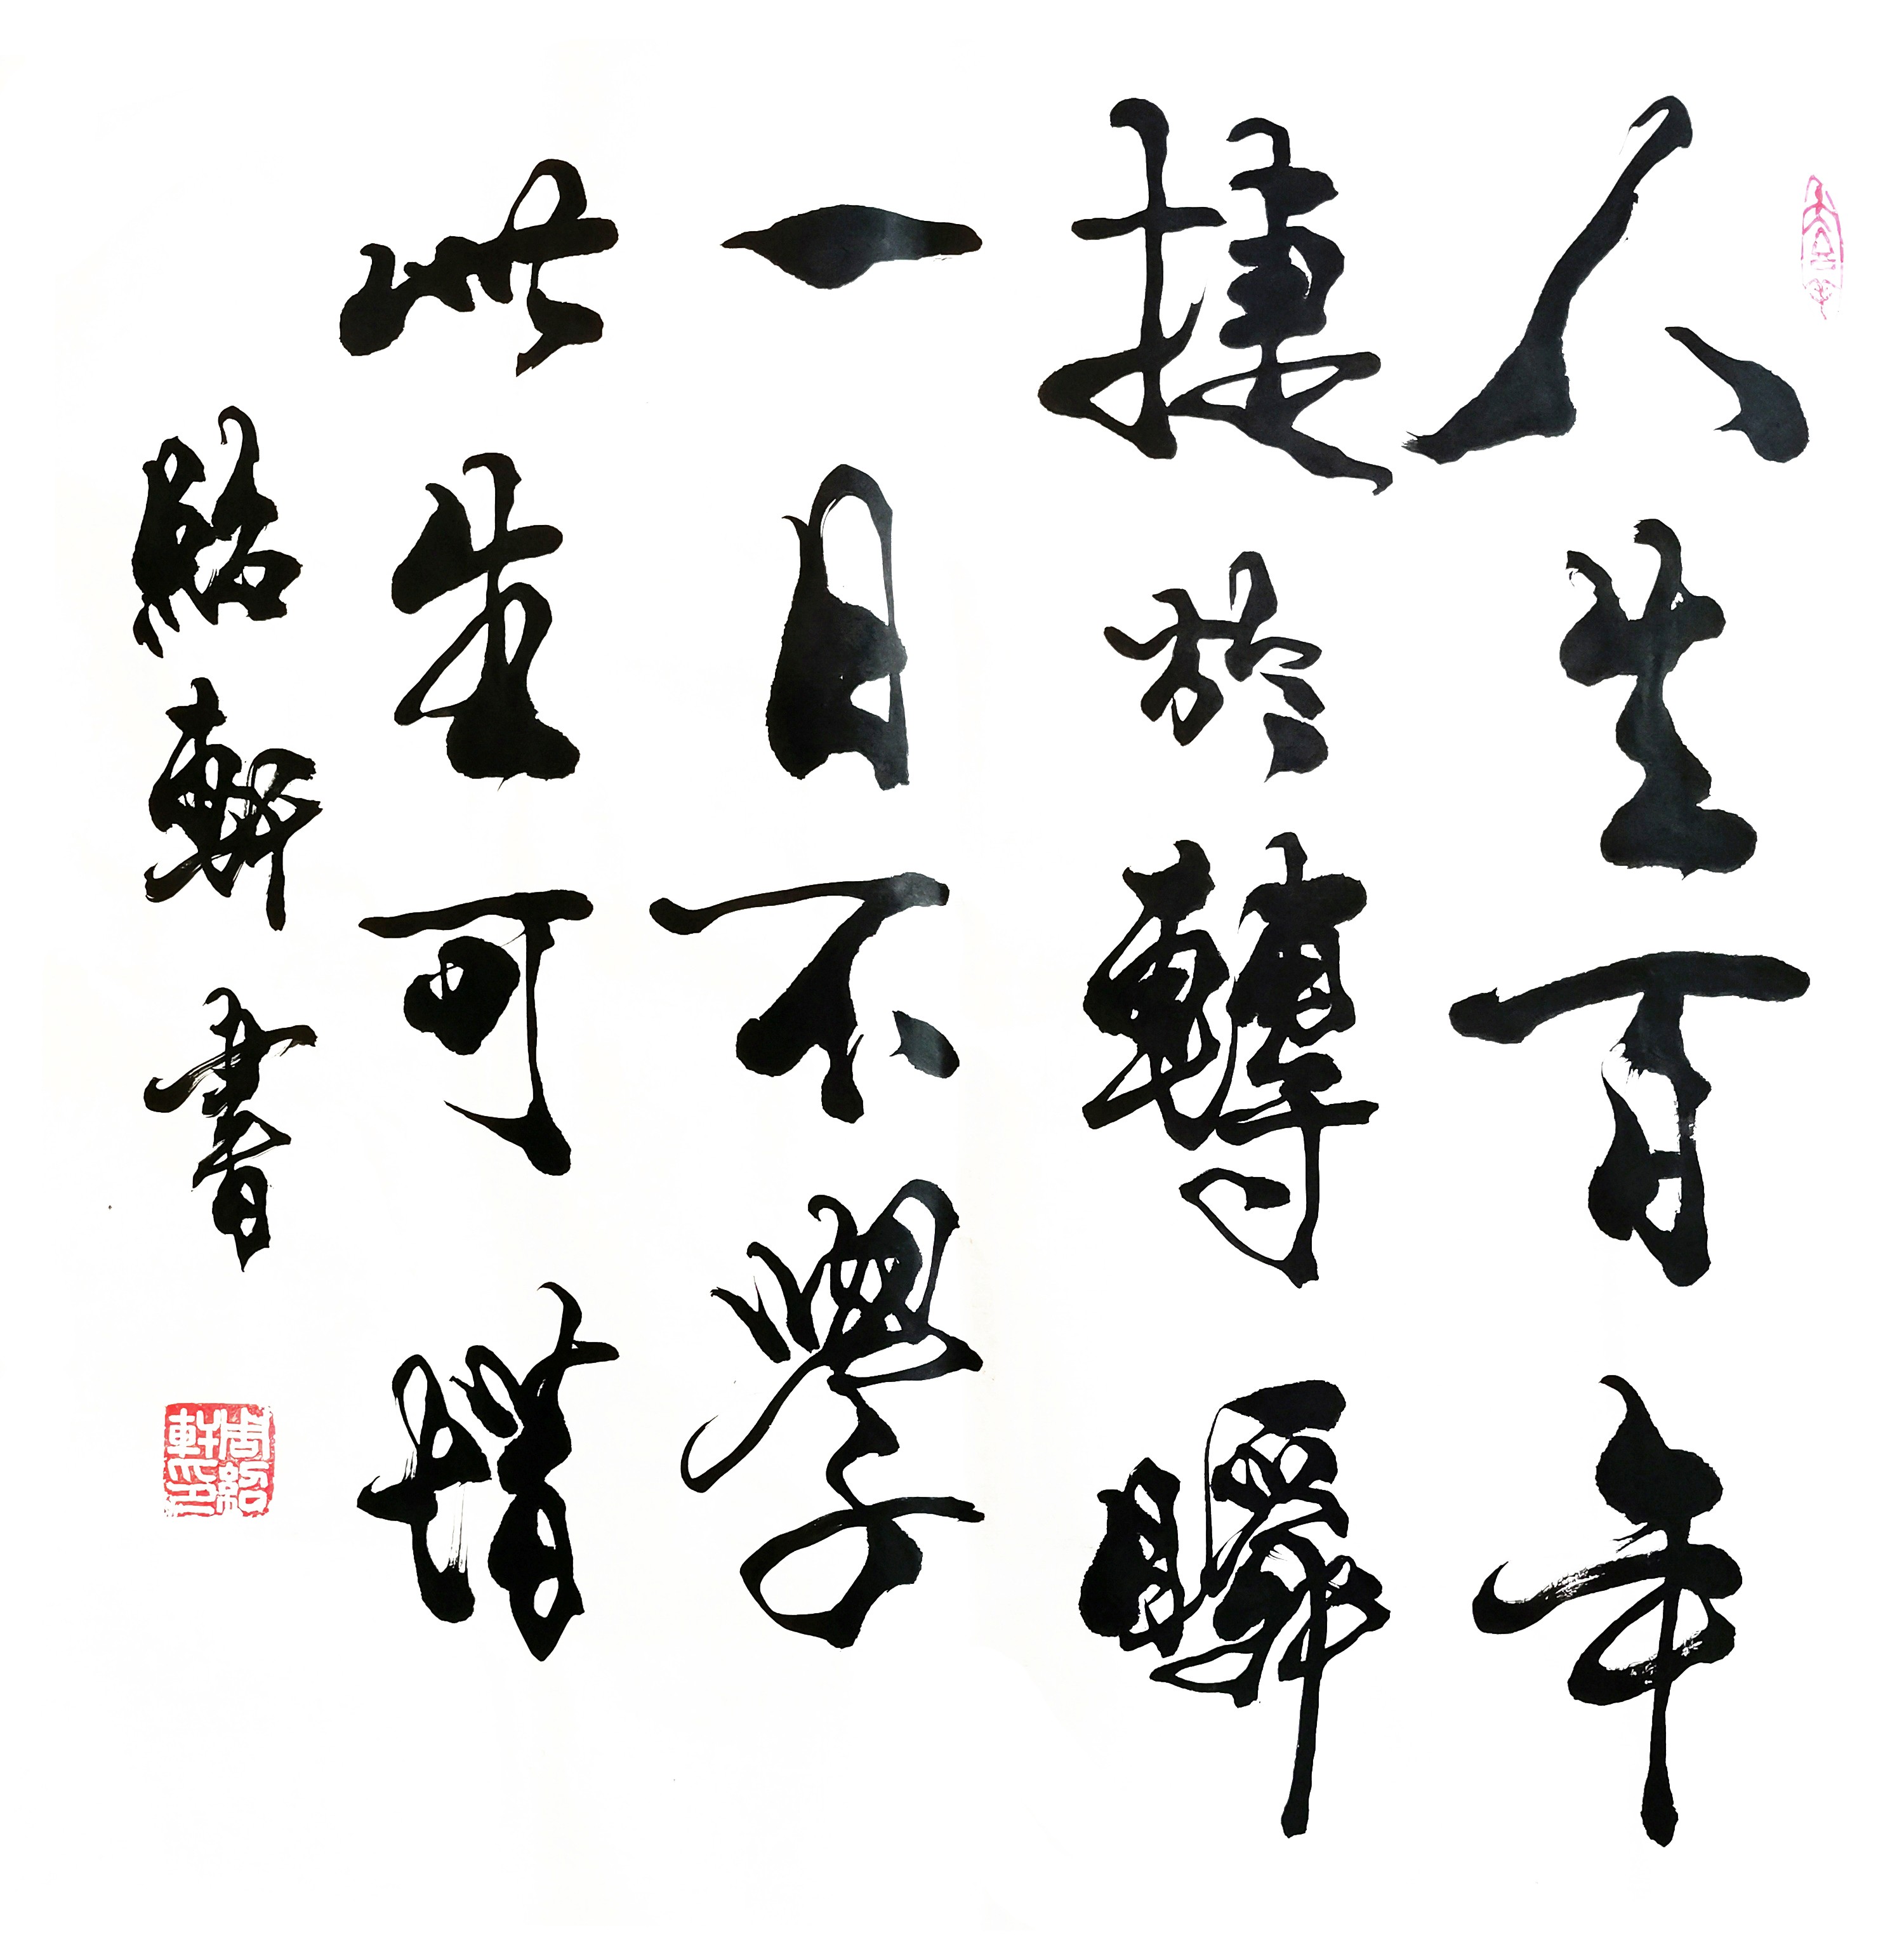 人生百年
捷於轉瞬
一日不學
此生可惜
紹軒書
周紹軒印